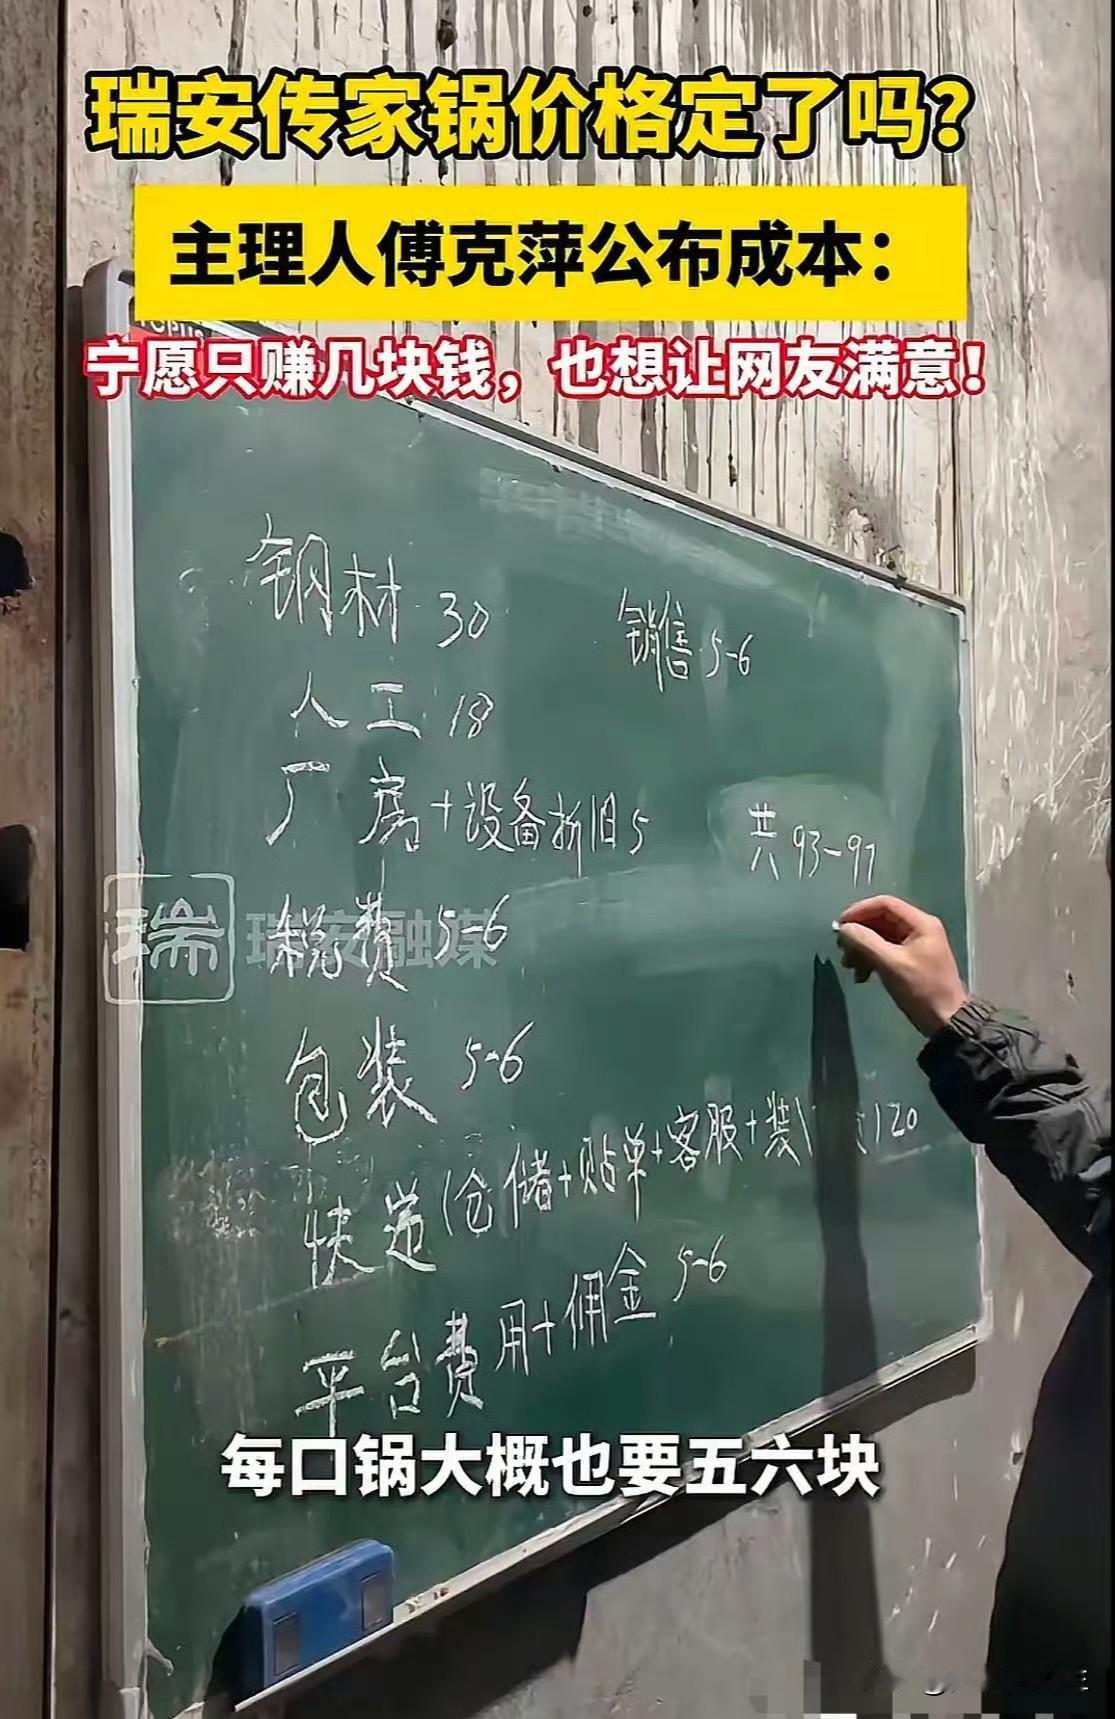 瑞安传家锅价格定了吗？
主理人傅克萍公布成本：
宁愿只赚几块钱，也想让网友满意！
钢材 30
人工 18
厂房+设备折旧5
税费 5-6
包装 5-6
快递(仓储+贴单+客服+装 20
平台费用+佣金 5-6
销售 5-6
共 93-97
瑞 瑞安融媒
每口锅大概也要五六块